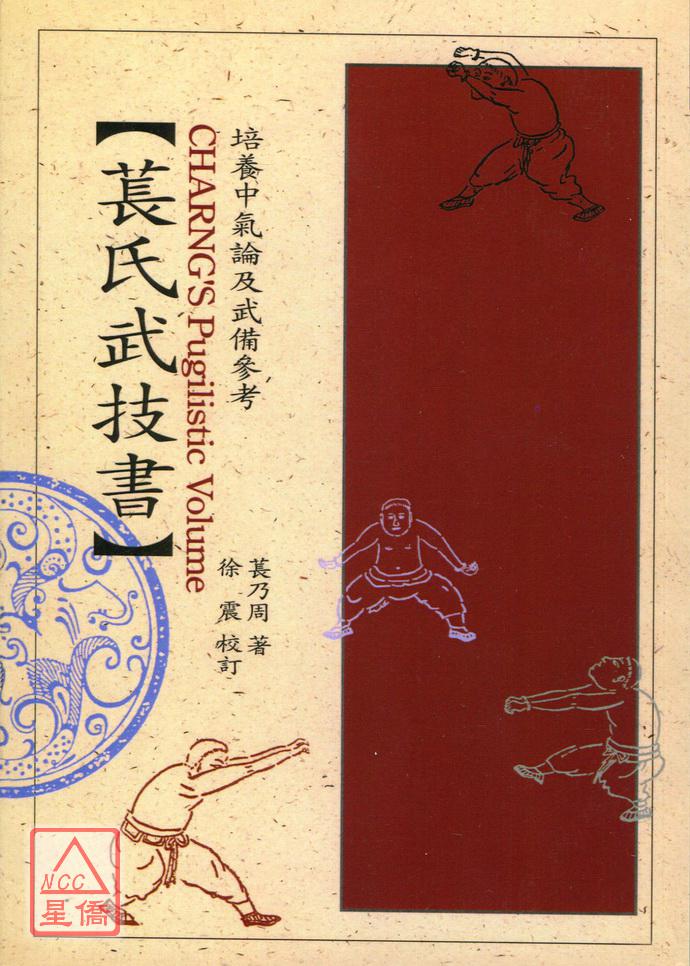 培養中氣論及武備參考
CHARNG'S Pugilistic Volume
【萇氏武技書】
萇乃周 著
徐 震 校訂
NCC
星僑